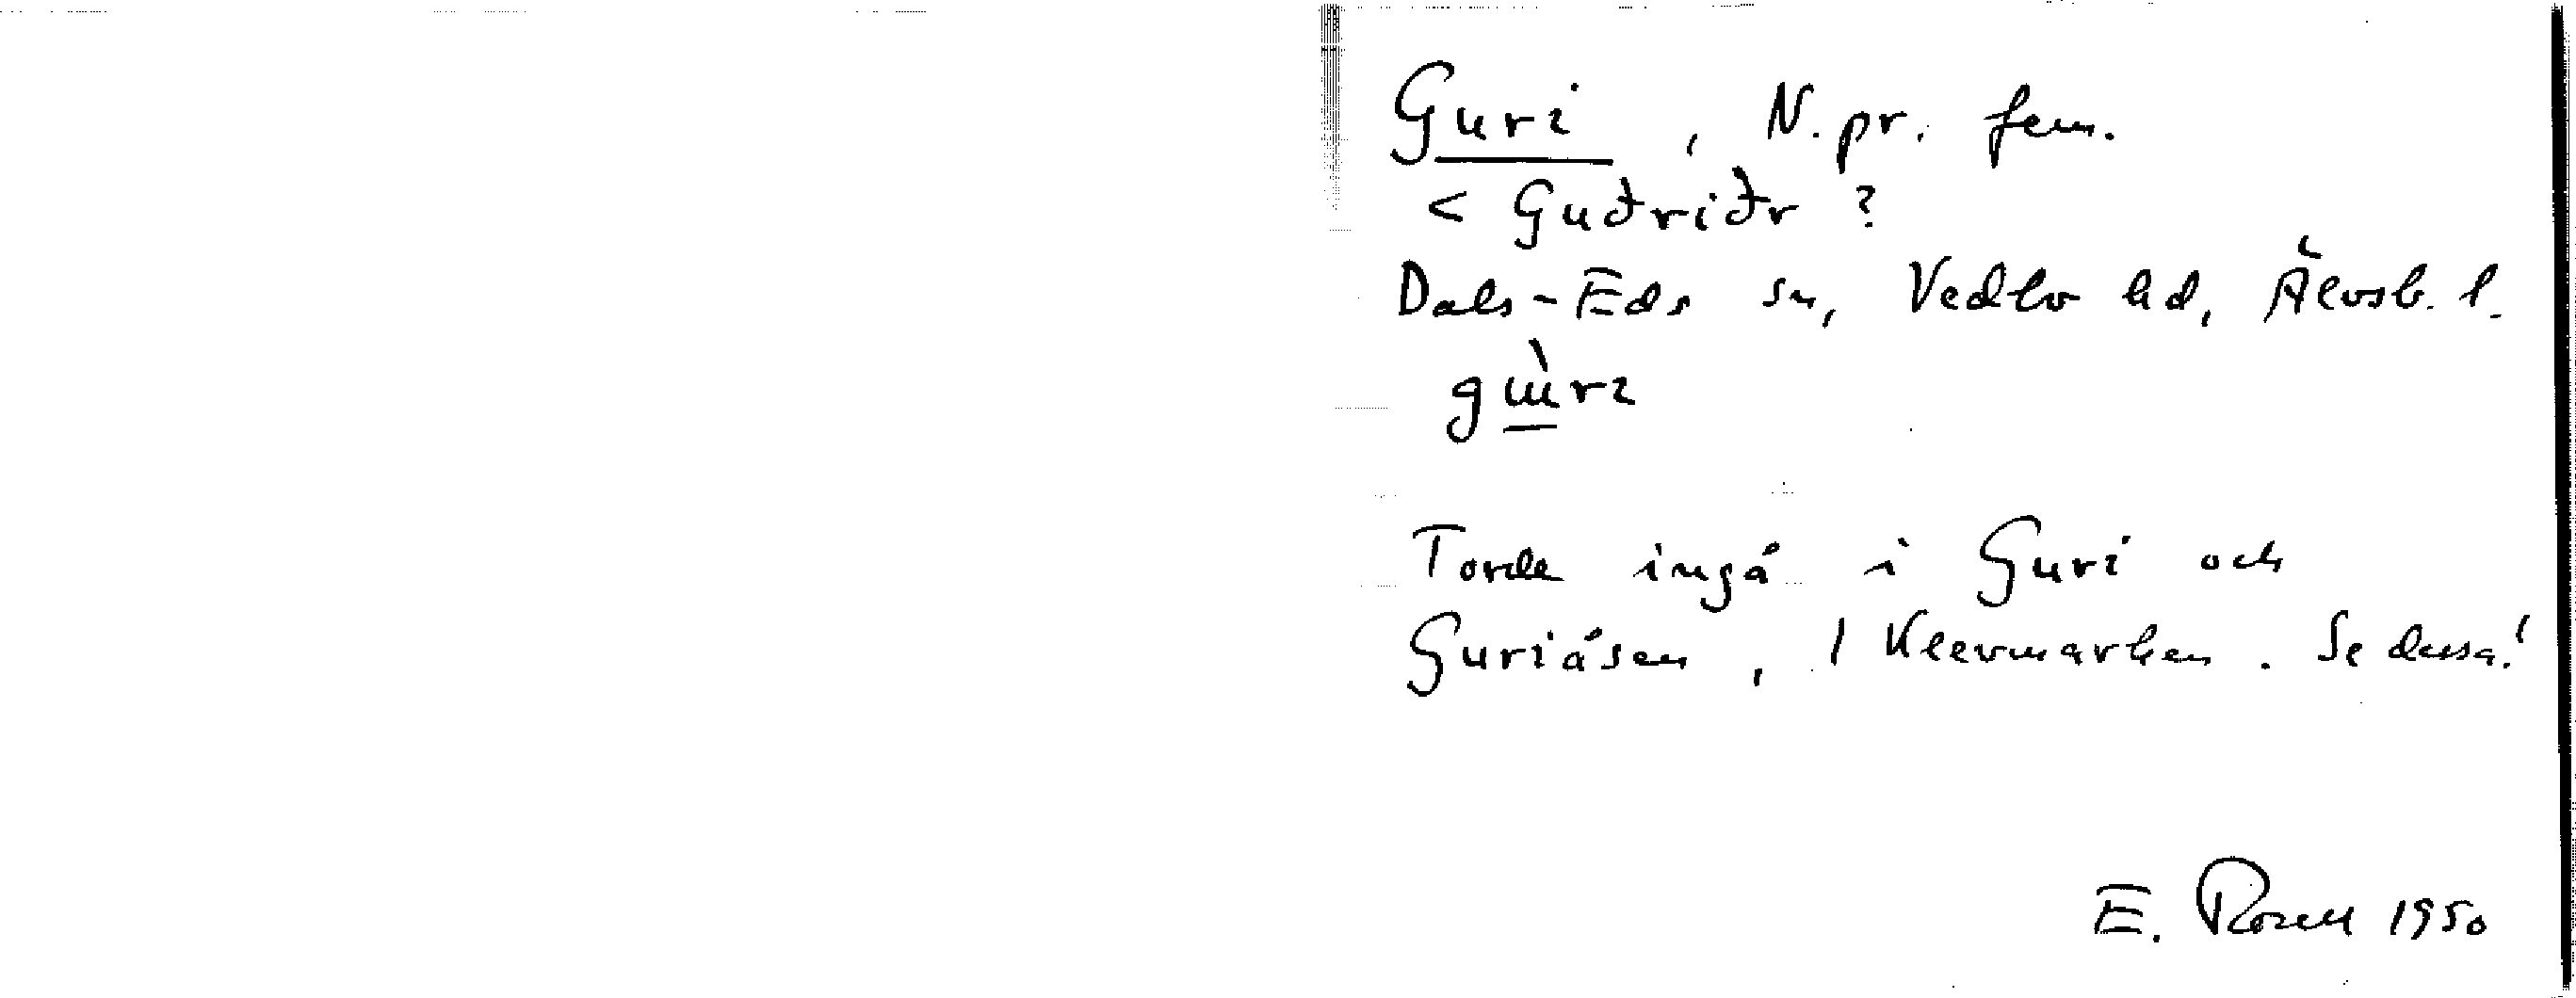 Guri , N. pr. fem.
< Guðriðr ?
Dals-Eds sn, Vedbo hd, Älvsb. l.
gɯ̀rɪ
Torde ingå i Guri och
Guriåsen , / Kleevmarken . Se dessa!
E. Rosell 1950